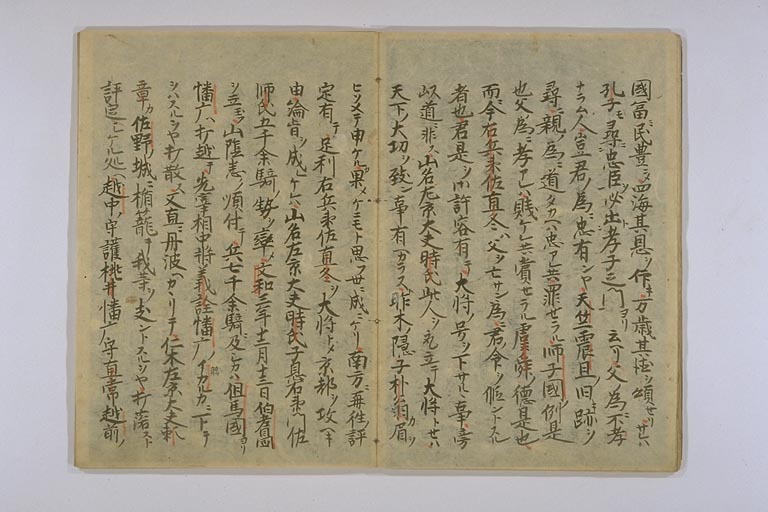 國冨民豊ニ四海其恩ヲ作キ万歳其徳ヲ頌セリサレハ
孔子モ尋忠臣必出孝子之門ヨリト云リ父ノ為不孝
ナラム人豈君ノ為ニ忠有ンヤ天竺震旦ノ旧跡ヲ
尋ニ親ノ為ニ道タカハ忠アレ共罪セラル師子國ノ例是
也父ノ為ニ孝アレハ賤ケレ共賞セラル虞舜ノ徳是也
而今右兵衛佐直冬ハ父ヲ亡サン為ニ君ノ命ヲ
者也君是ヲ御許容有テ大将ノ号ヲ下サルヽ事
以道非ス山名左京大夫時氏此人ヲ取立テ大将トセハ
天下大切ヲ致ン事有ヘカラスト昨木ノ隠子朴翁眉ヲ
ヒソメテ申ケルカ果メケニモト思フ世ニ成ニケリ南方ニ再往ノ評
定有テ足利右兵衛佐直冬ヲ大将トメ京都ヲ攻ヘキ
由綸旨ヲ成レケレハ山名左京大夫時氏子息右衛門佐
師氏五千余騎ノ勢ヲ率メ文和三年十二月十三日伯耆國
ヲ立玉フ山陰悉ク順付テ兵七千余騎ニ及シカハ但馬國ヨリ
播广ヘ打越テ先宰相中将義詮播广ノイカルカニ下テ
ヲハスルヲヤ打散ス又直ニ丹波ヘカヽリテ仁木左京大夫頼
章カ佐野ノ城ニ楯籠テ我等ヲ支ントスルヲヤ打落スト
評定シケル処ヘ越中ノ守護桃井播广守直常越前ノ